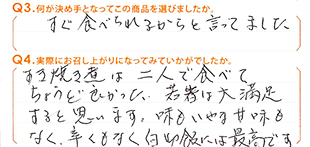 Q3.何が決め手となってこの商品を選びましたか。
すぐ食べられるからと言ってました
Q4.実際にお召し上がりになってみていかがでしたか。
すき焼き煮は二人で食べて
ちょうど良かった。若者は大満足
すると思います。味もいやな甘味も
なく、辛くもなく白御飯には最高です